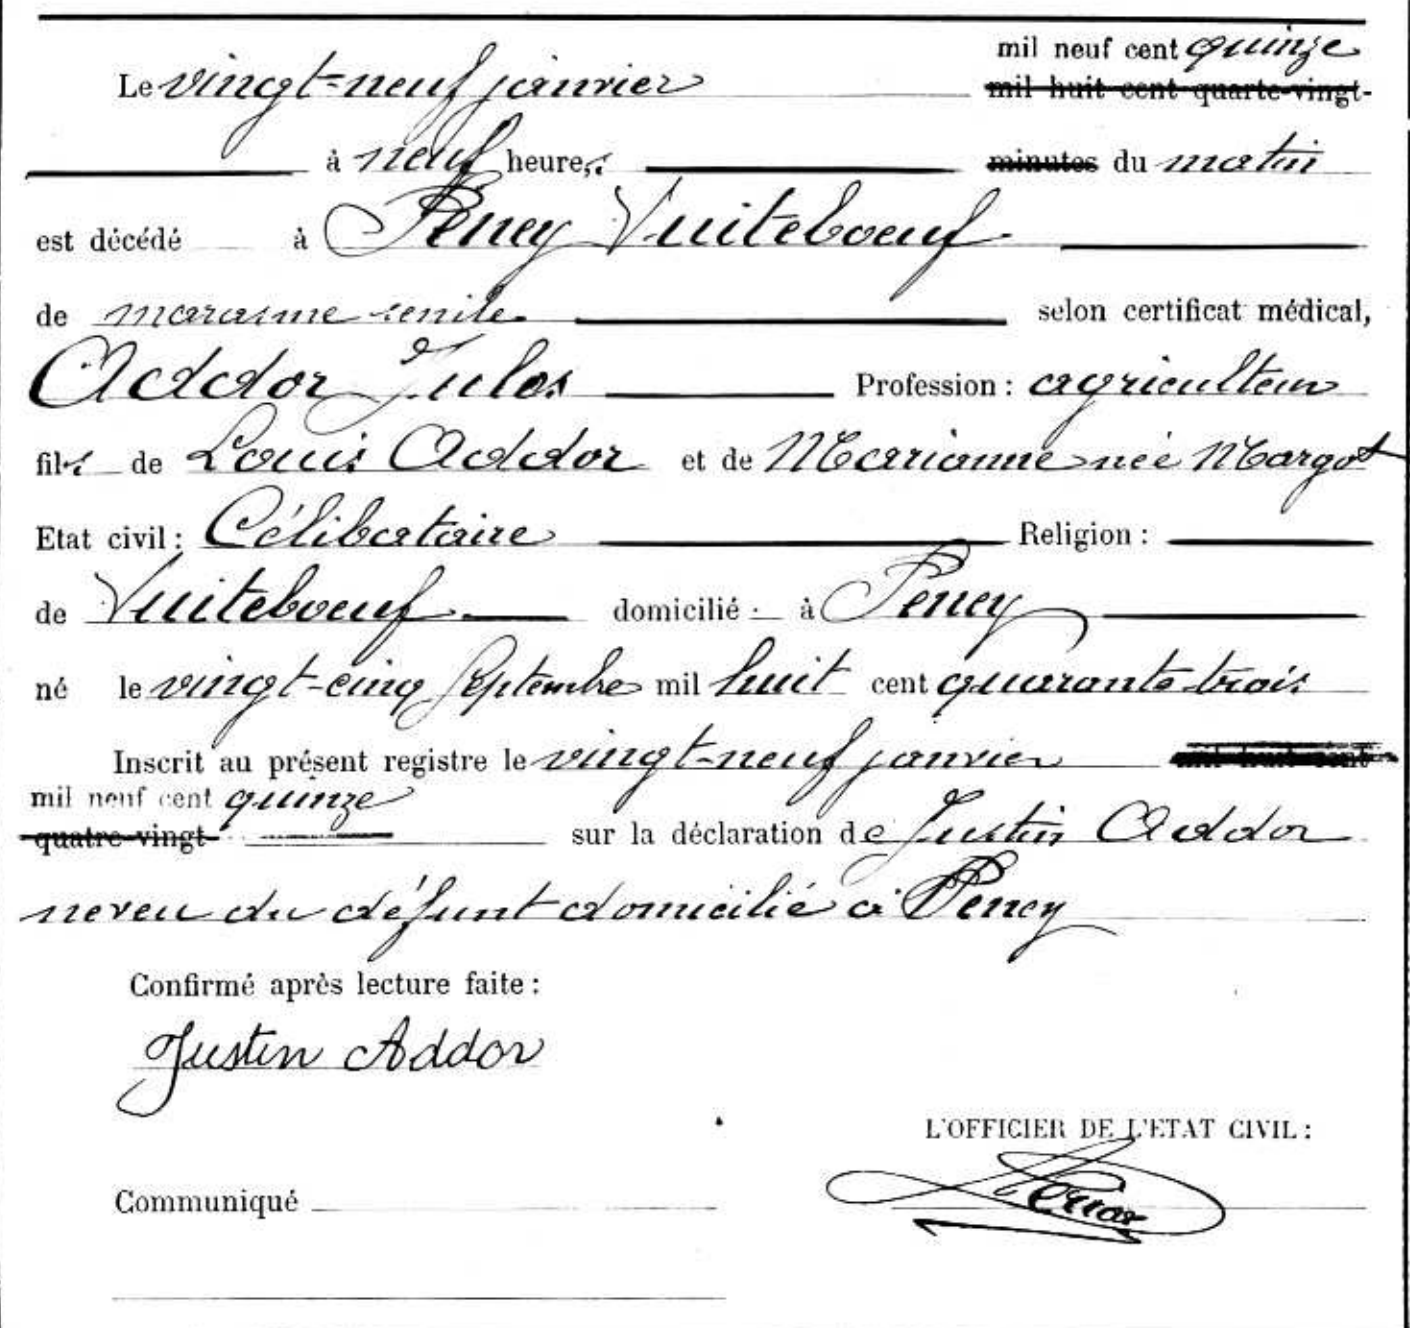 mil neuf cent quinze
Le vingt-neuf janvier mil huit cent quatre-vingt-
à neuf heures minutes du matin
est décédé à Peney Vuiteboeuf
de marasme senile selon certificat médical,
Addor Jules Profession : agriculteur
fils de Louis Addor et de Marianne née Margot
Etat civil : Célibataire Religion :
de Vuiteboeuf domicilié à Peney
né le vingt-cinq Septembre mil huit cent quarante-trois
Inscrit au présent registre le vingt-neuf janvier mil huit cent
mil neuf cent quinze
quatre-vingt- sur la déclaration de Justin Addor
neveu du défunt domicilié à Peney
Confirmé après lecture faite :
Justin Addor
L'OFFICIER DE L'ETAT CIVIL :
Communiqué